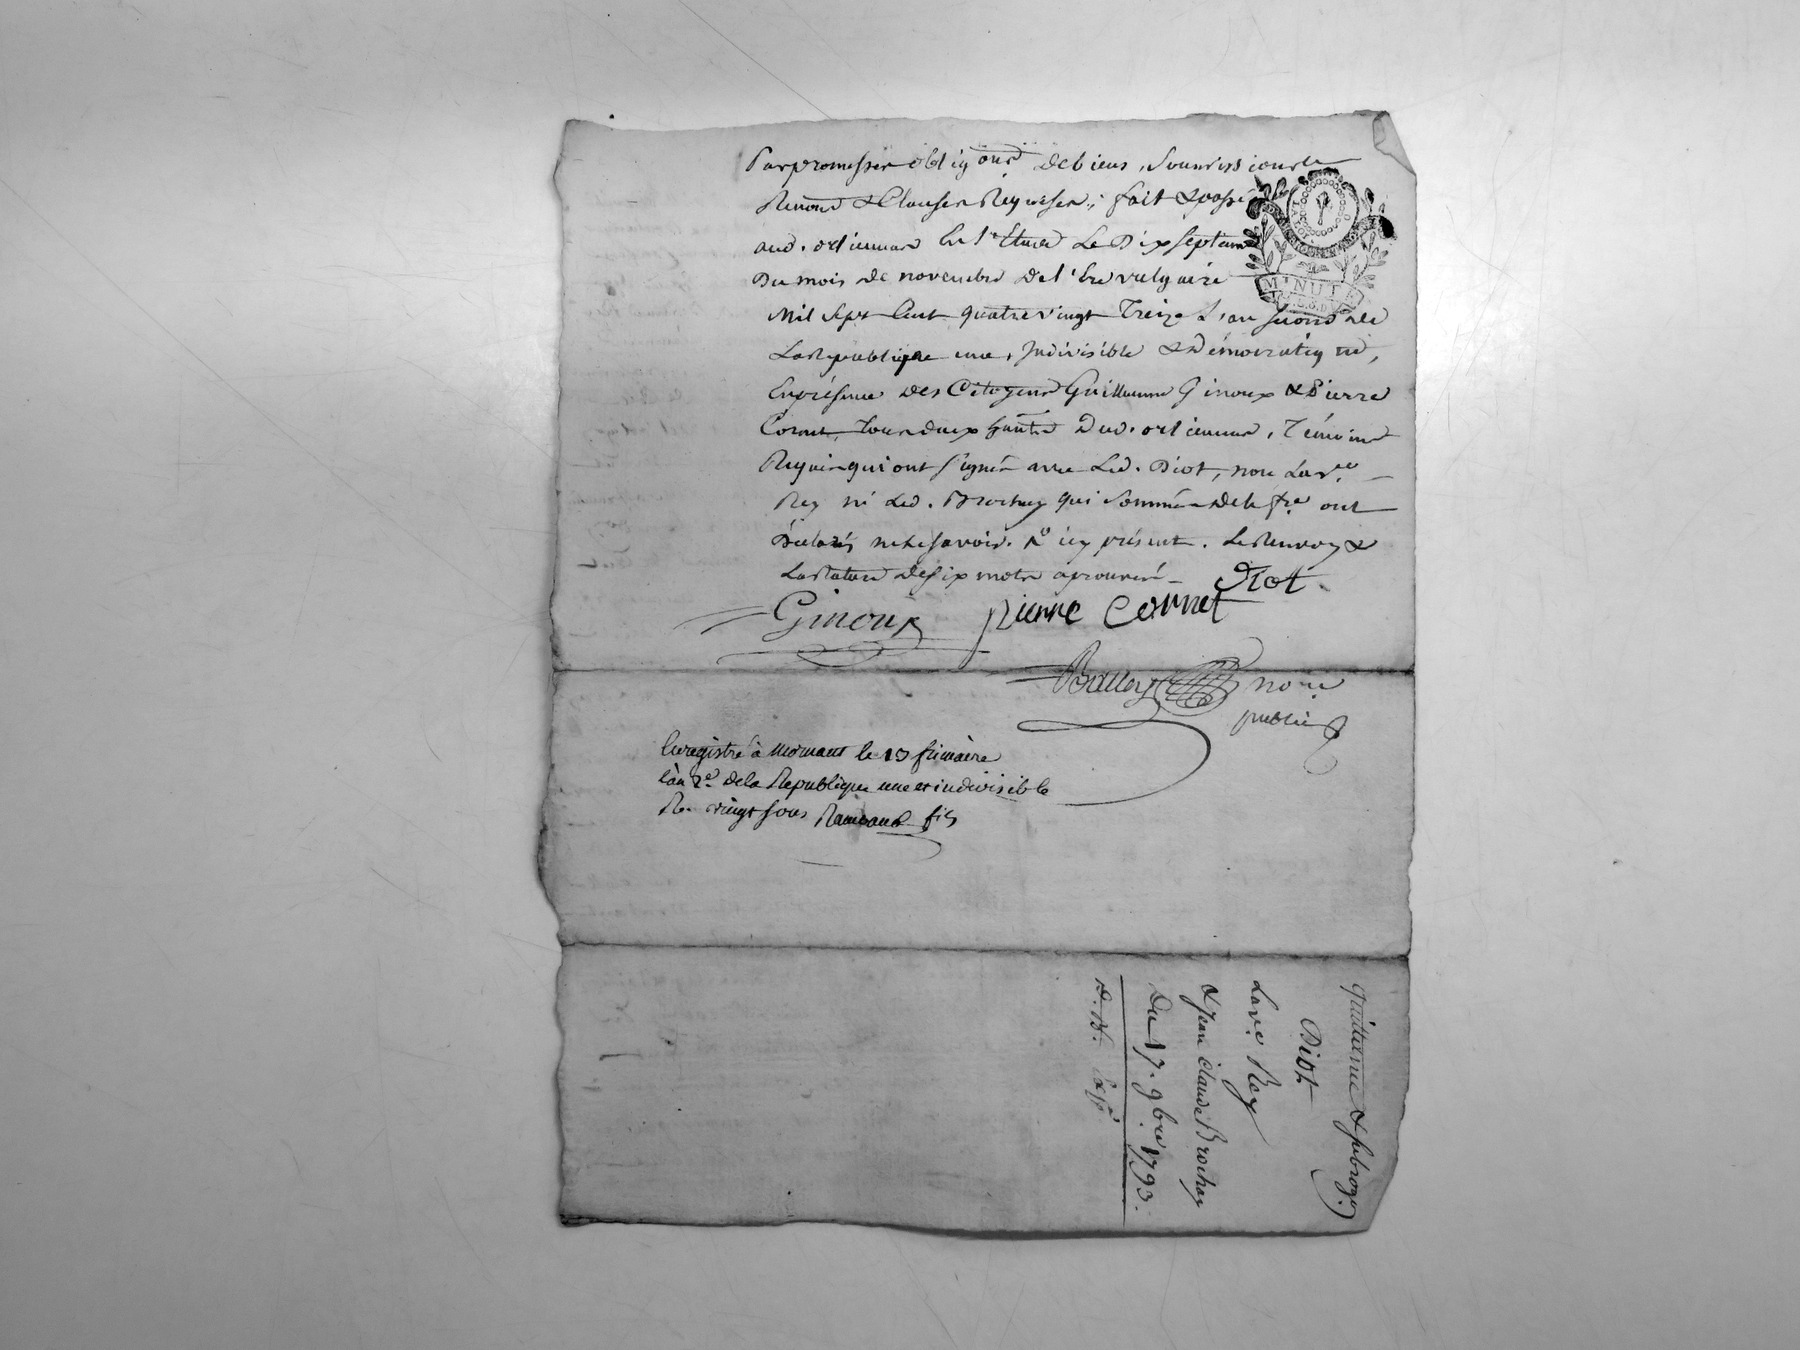 Par promesses obligons De biens, Soumissions
Renons & Clauses Requises; fait & passé
aud. orliennas En l'Etude Le Dix septieme
Du mois de novembre De l'Ere vulgaire
Mil sept Cent quatre vingt Treize L'an second de
La Republique une, Indivisible & Démocratique,
En présence des Citoyens Guillaume Ginoux & Pierre
Cornet, Tous deux Dud. orliennas, Témoins
Requis qui ont signés avec Led. Diot, non La ve
Rey ni Led. Brochay qui Sommés De le fre ont
Déclarés ne Le savoir. Le Renvoy &
La Rature de six mots aprouvés
Diot
Ginoux Pierre Cornet
nore
public
MINUTE
Enregistré à Mornant le 13 frimaire
l'an 2e de la Republique une et indivisible
Ru vingt sous fils
quittance & subrogon
Diot
La ve Rey
& Jean Claude Brochay
Du 17. 9bre 1793.